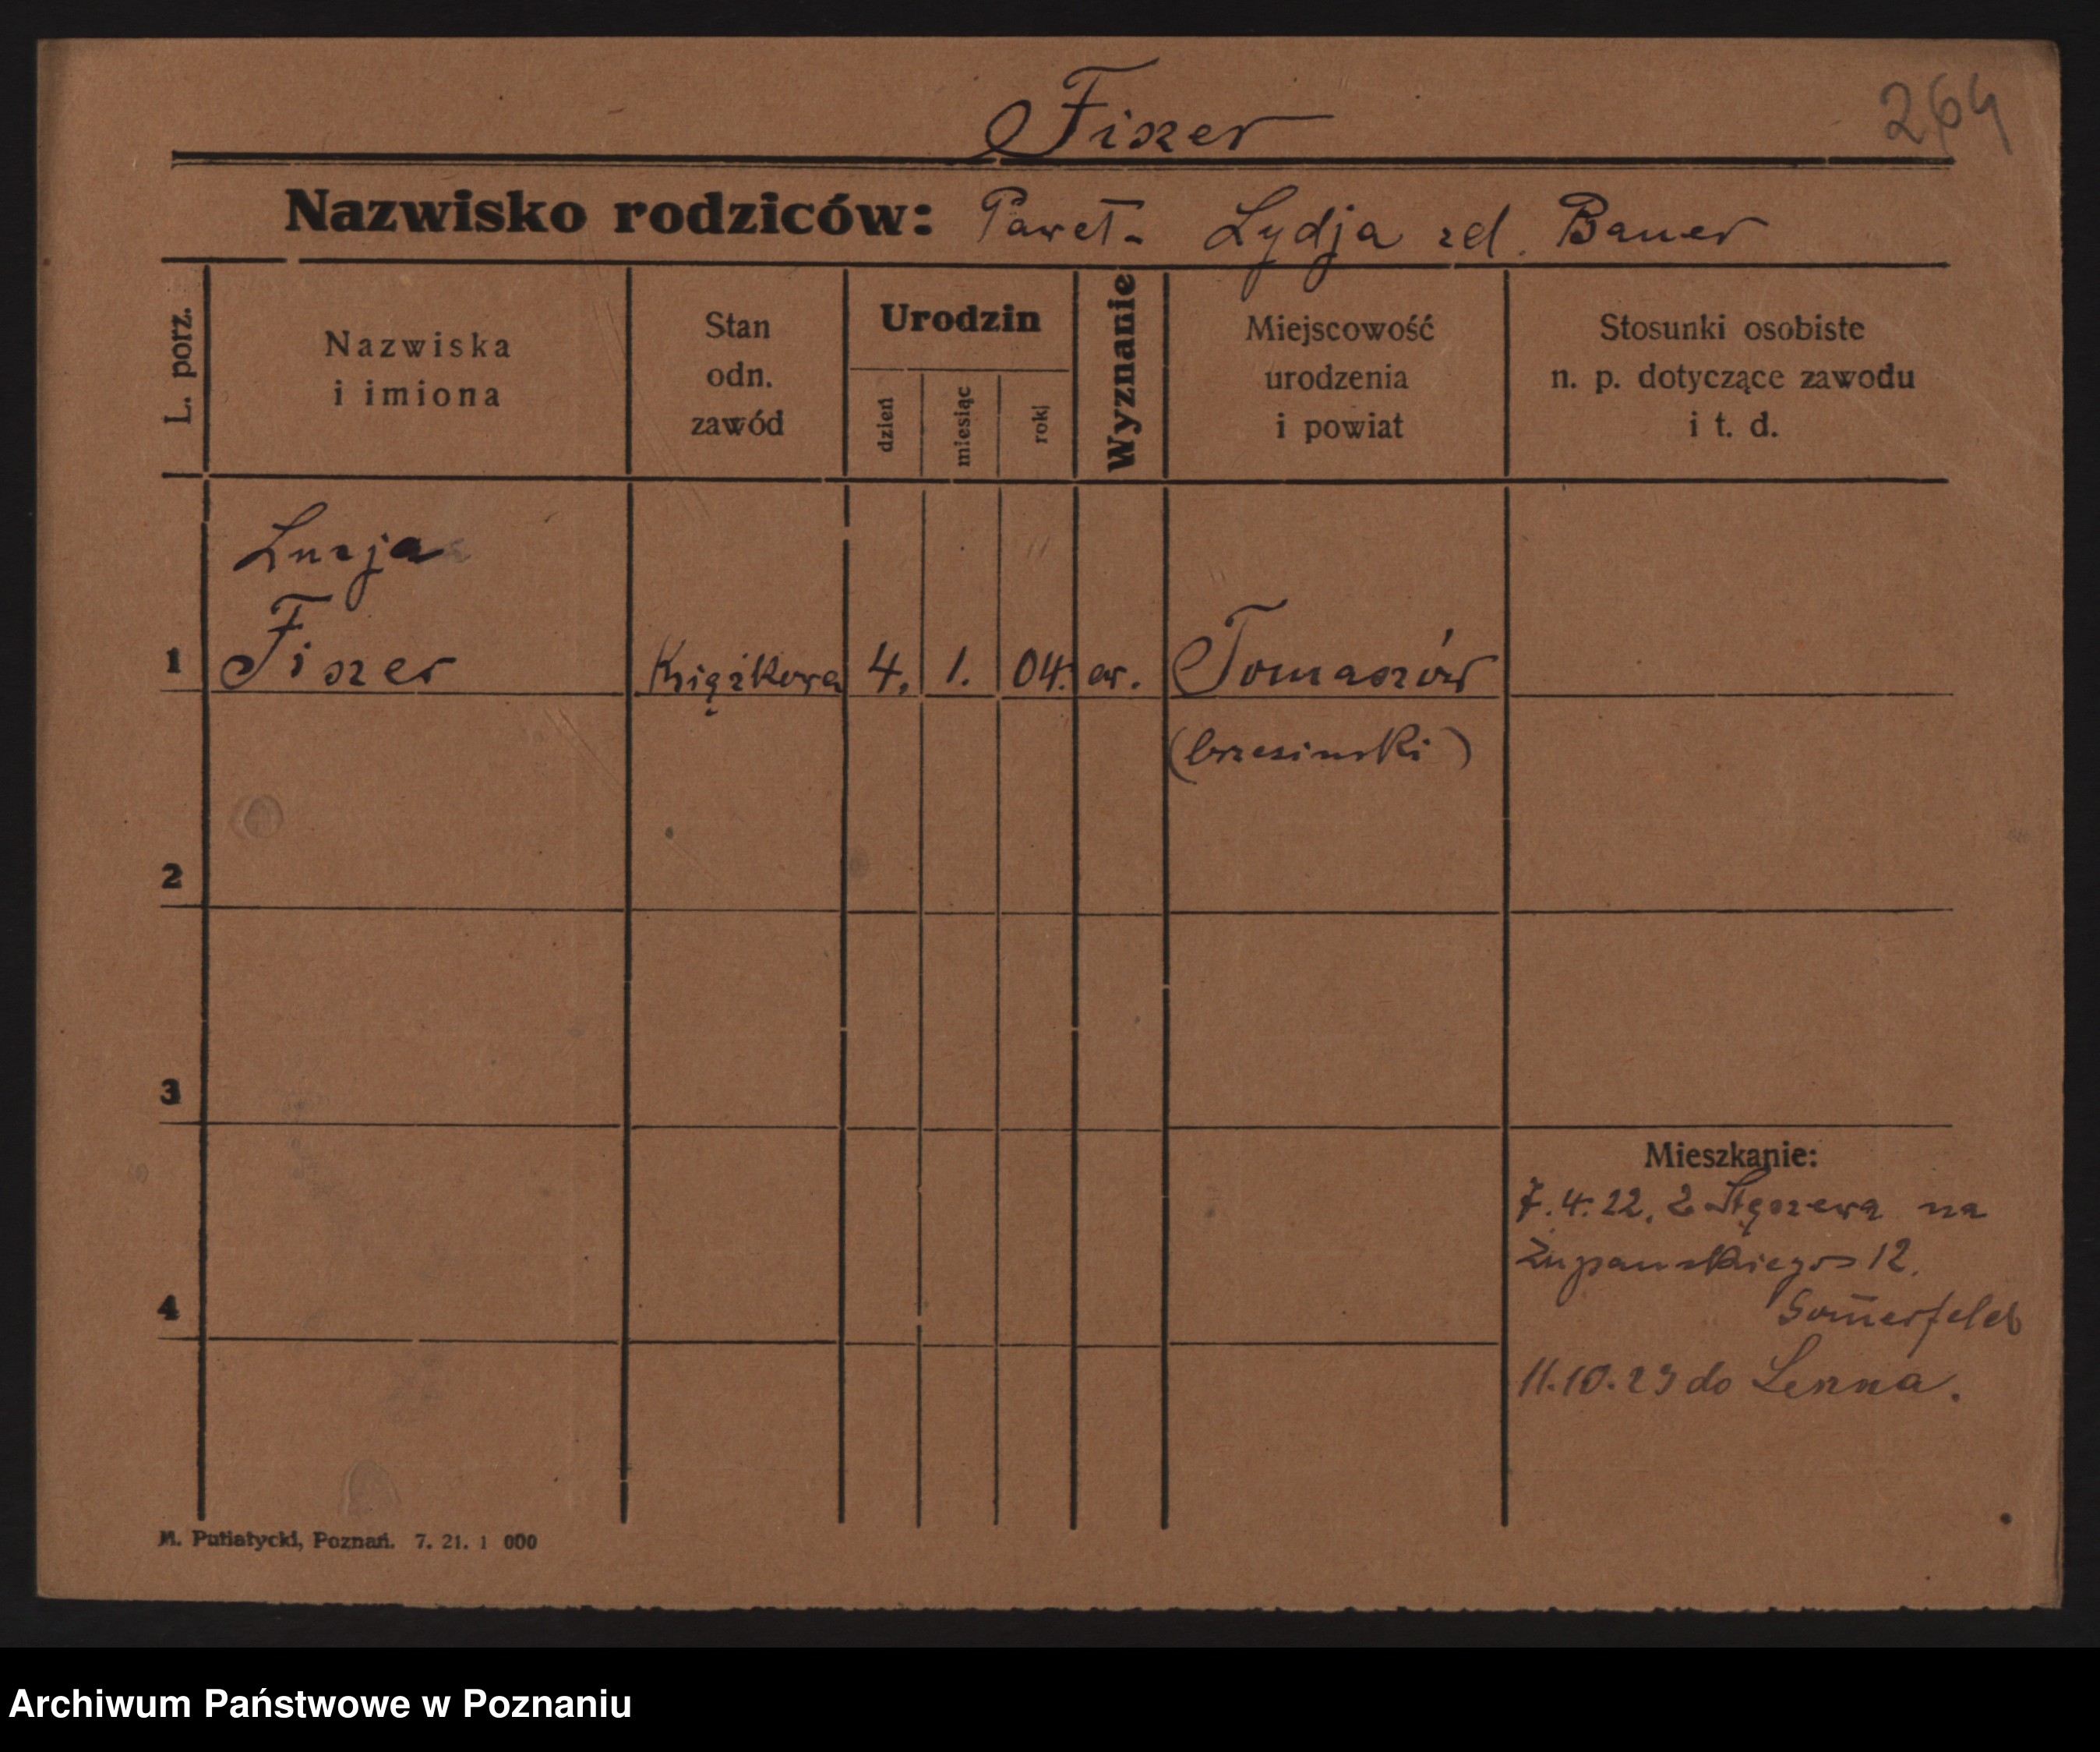 264
Fiszer
Nazwisko rodziców: Paweł - Lydja zd. Bauer
L. porz.
Nazwiska
i imiona
Stan
odn.
zawód
Urodzin
dzień
miesiąc
rok
Wyznanie
Miejscowość
urodzenia
i powiat
Stosunki osobiste
n. p. dotyczące zawodu
i t. d.
Luzja
1 Fiszer Książkowa 4. 1. 04. ew. Tomaszów
(brzesinski)
2
3
4
Mieszkanie:
7.4.22. z Stęszewa na
Żupanskiego 12.
Som̄erfeld
11.10.23 do
M. Putiatycki, Poznań. 7. 21. 1 000
Archiwum Państwowe w Poznaniu